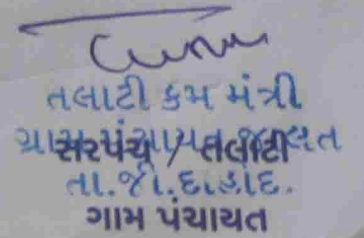 તલાટી કમ મંત્રી
ગ્રામ પંચાયત
સરપંચ / તલાટી
તા.જી.દાહોદ.
ગામ પંચાયત